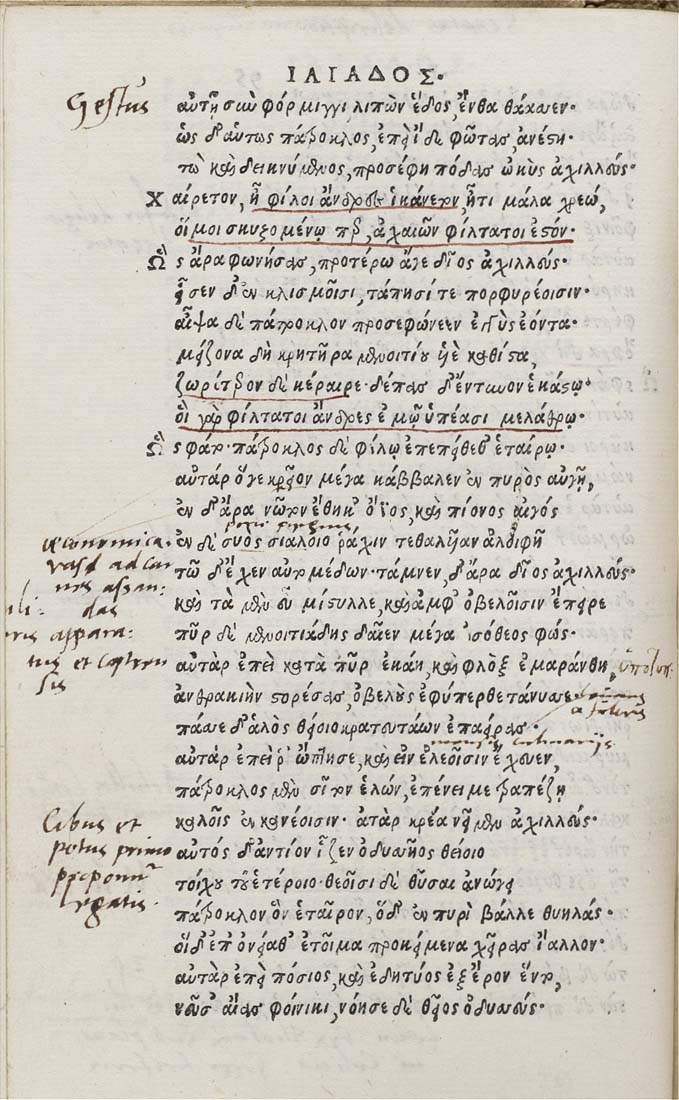 ΙΛΙΑΔΟΣ·
αὐτῇ σὺν φόρμιγγι λιπὼν ἕδος, ἔνθα θάασσεν·
ὣς δ' αὔτως πάτροκλος, ἐπεὶ ἴδε φῶτας, ἀνέστη·
τὼ καὶ δεικνύμενος, προσέφη πόδας ὠκὺς ἀχιλλεύς·
Χαίρετον, ἦ φίλοι ἄνδρες ἱκάνετον, ἦτι μάλα χρεώ,
οἵ μοι σκυζομένῳ περ, ἀχαιῶν φίλτατοι ἐστόν·
Ὣς ἄρα φωνήσας, προτέρω ἄγε δῖος ἀχιλλεύς·
εἷσεν δ' ἐν κλισμοῖσι, τάπησί τε πορφυρέοισιν·
αἶψα δὲ πάτροκλον προσεφώνεεν ἐγγὺς ἐόντα·
μείζονα δὴ κρητῆρα μενοιτίου ὑιὲ καθίστα,
ζωρότερον δὲ κέραιρε· δέπας δ' ἔντυνον ἑκάστῳ·
οἳ γὰρ φίλτατοι ἄνδρες ἐμῷ ὑπέασι μελάθρῳ·
Ὣς φάτ· πάτροκλος δὲ φίλῳ ἐπεπείθεθ' ἑταίρῳ·
αὐτάρ ὅγε κρεῖον μέγα κάββαλεν ἐν πυρὸς αὐγῇ,
ἐν δ' ἄρα νῶτον ἔθηκ' ὄϊος, καὶ πίονος αἰγός
ἐν δὲ συὸς σιάλοιο ῥάχιν τεθαλυῖαν ἀλοιφῇ
τῷ δ' ἔχεν αὐτομέδων· τάμνεν, δ' ἄρα δῖος ἀχιλλεύς·
καὶ τὰ μὲν εὖ μίστυλλε, καὶ ἀμφ' ὀβελοῖσιν ἔπειρε
πῦρ δὲ μενοιτιάδης δαῖεν μέγα ἰσόθεος φώς·
αὐτὰρ ἐπεὶ κατὰ πῦρ ἐκάη, καὶ φλὸξ ἐμαράνθη,
ἀνθρακιὴν στορέσας, ὀβελοὺς ἐφύπερθε τάνυσσε
πάσσε δ' ἁλὸς θείοιο κρατευτάων ἐπαείρας·
αὐτὰρ ἐπεί ῥ' ὤπτησε, καὶ εἰν ἐλεοῖσιν ἔχευεν,
πάτροκλος μὲν σῖτον ἑλών, ἐπένειμε τραπέζῃ
καλοῖς ἐν κανέοισιν· ἀτὰρ κρέα νεῖμεν ἀχιλλεύς·
αὐτός δ' ἀντίον ἷζεν ὀδυσσῆος θείοιο
τοίχου τοῦ ἑτέροιο· θεοῖσι δὲ θῦσαι ἀνώγει
πάτροκλον ὃν ἑταῖρον, ὅδ' ἐν πυρὶ βάλλε θυηλάς·
οἱ δ' ἐπ' ὀνείαθ' ἑτοῖμα προκείμενα χεῖρας ἴαλλον·
αὐτὰρ ἐπεὶ πόσιος, καὶ ἐδητύος ἐξ ἔρον ἕντο,
νεῦσ' αἴας φοίνικι, νόησε δὲ θεῖος ὀδυσσεύς·
Gestus
œconomica.
vasa ad car
nes assan:
das
appara:
tus et castren
sis
Cibus et
potus primo
proponitur
legatis.